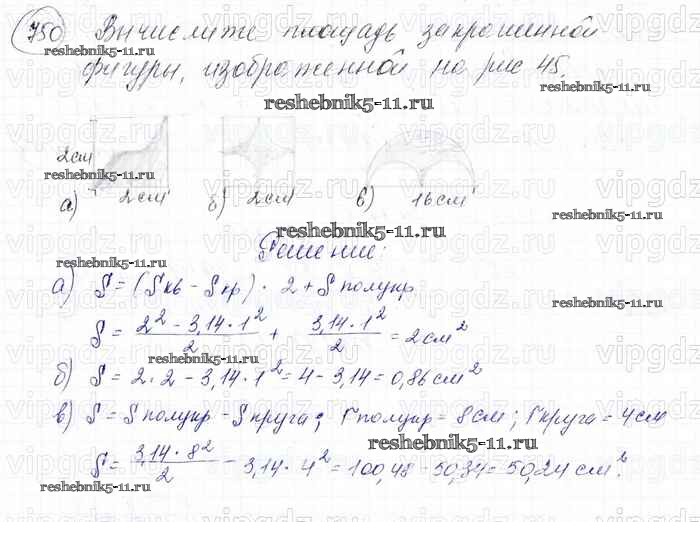 750 Вычислите площадь закрашенной
фигуры, изображенной на рис 45.
reshebnik5-11.ru
reshebnik5-11.ru
2см
reshebnik5-11.ru
а) 2см б) 2см в) 16см
reshebnik5-11.ru
reshebnik5-11.ru
Решение:
reshebnik5-11.ru
а) S = (Sкв - Sкр) · 2 + Sполукр
reshebnik5-11.ru
S = (2² - 3,14 · 1²)/2 + (3,14 · 1²)/2 = 2 см²
reshebnik5-11.ru
б) S = 2 · 2 - 3,14 · 1² = 4 - 3,14 = 0,86 см²
в) S = Sполукр - Sкруга; rполукр = 8см; rкруга = 4см
reshebnik5-11.ru
S = (3,14 · 8²)/2 - 3,14 · 4² = 100,48 - 50,24 = 50,24 см².
reshebnik5-11.ru
reshebnik5-11.ru
vipgdz.ru